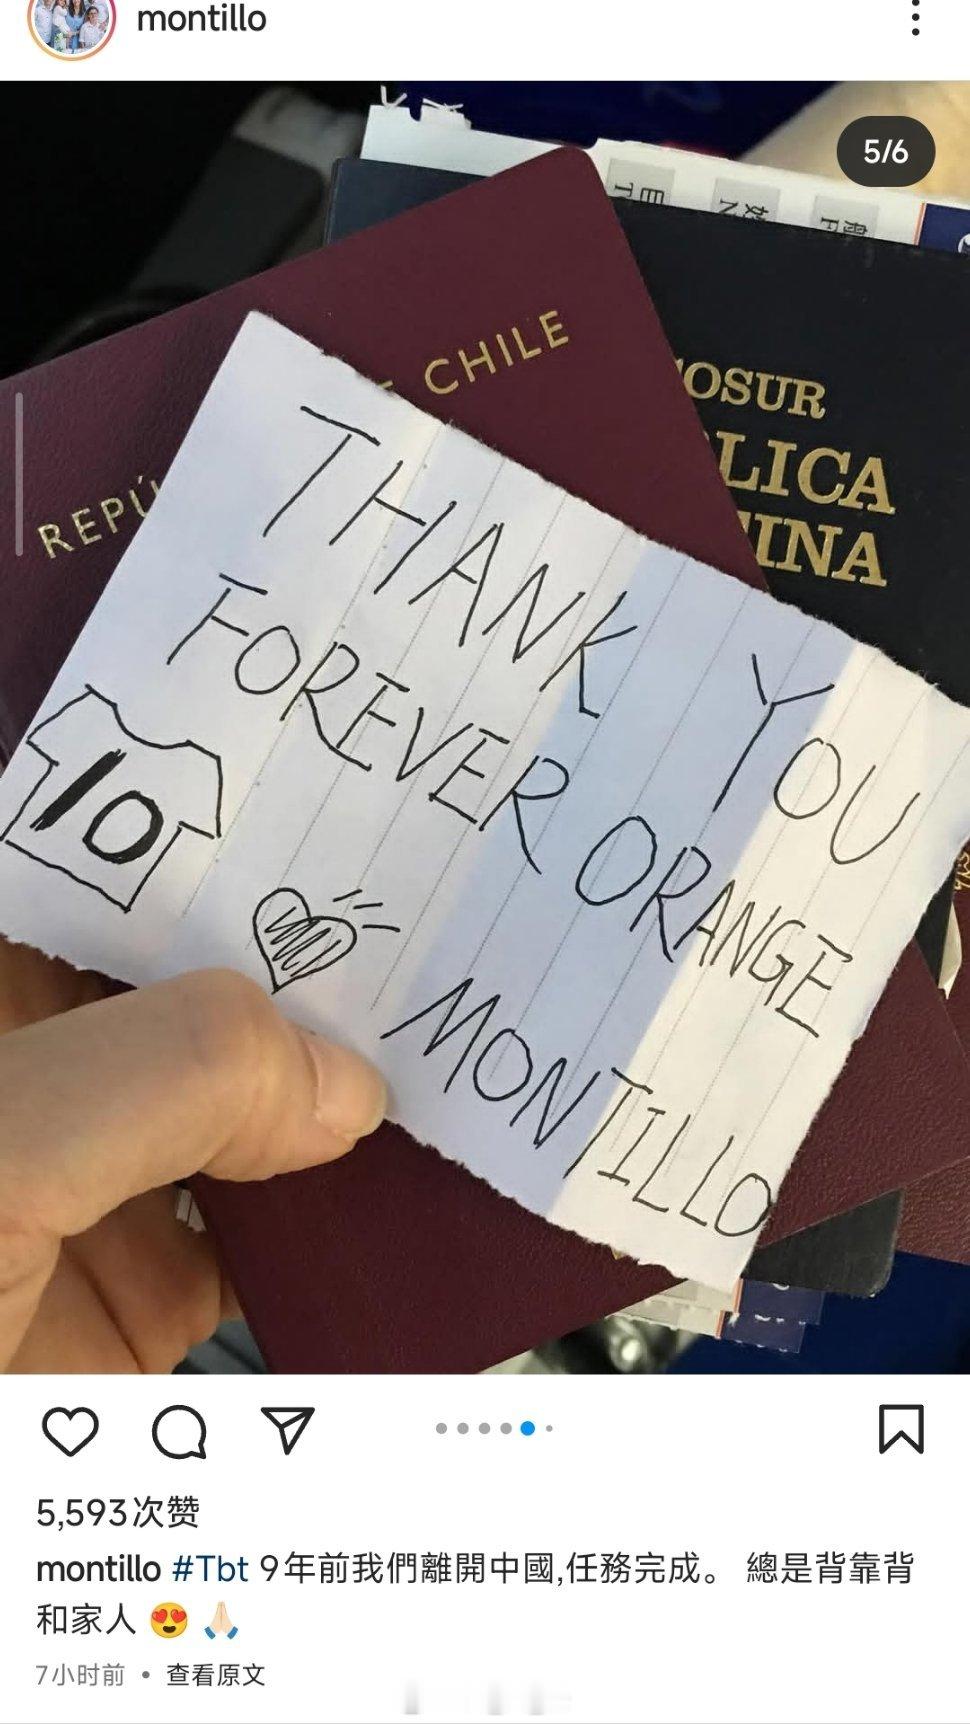 montillo
5/6
CHILE
REPÚ
OSUR
LICA
INA
THANK YOU
FOREVER ORANGE
10
MONTILLO
5,593次赞
montillo #Tbt 9年前我們離開中國,任務完成。 總是背靠背
和家人 😍 🙏🏻
7小时前 • 查看原文